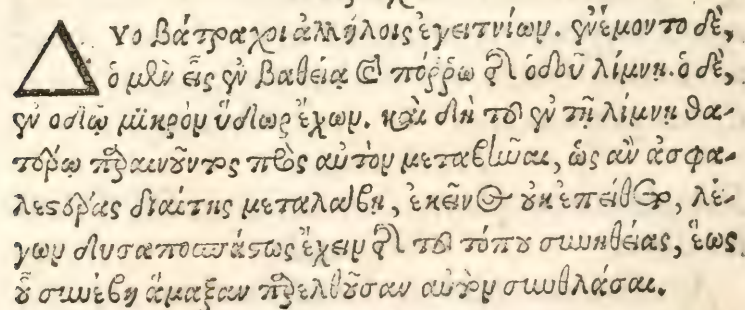 Δύο βάτραχοι ἀλλήλοις ἐγειτνίων. ἐνέμοντο δὲ,
ὁ μὲν εἷς ἐν βαθείᾳ καὶ πόῤῥω τῆς ὁδοῦ λίμνῃ. ὁ δὲ,
ἐν ὁδῷ μικρὸν ὕδωρ ἔχων. καὶ δὴ τοῦ ἐν τῇ λίμνῃ θα-
τέρῳ παραινοῦντος πρὸς αὐτὸν μεταβῆναι, ὡς ἂν ἀσφα-
λεστέρας διαίτης μεταλάβῃ, ἐκεῖνος οὐκ ἐπείθετο, λέ-
γων δυσαποσπάστως ἔχειν τῆς τοῦ τόπου συνηθείας, ἕως
οὗ συνέβη ἅμαξαν παρελθοῦσαν αὐτὸν συνθλάσαι.